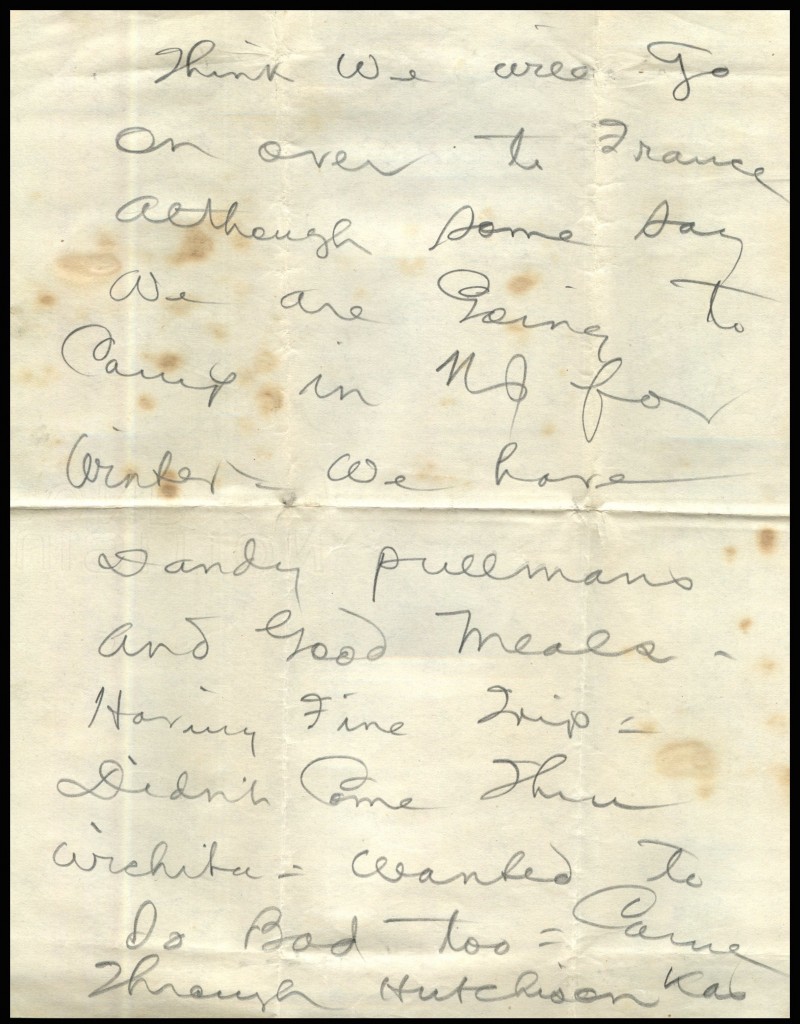 Think We will Go
On over to France
Although some say
We are Going to
Camp in NJ for
Winter - We have
Dandy pullmans
and Good Meals -
Having Fine Trip =
Didn't Come Thru
Wichita = wanted to
Do Bad too = Came
Through Hutchison Kas